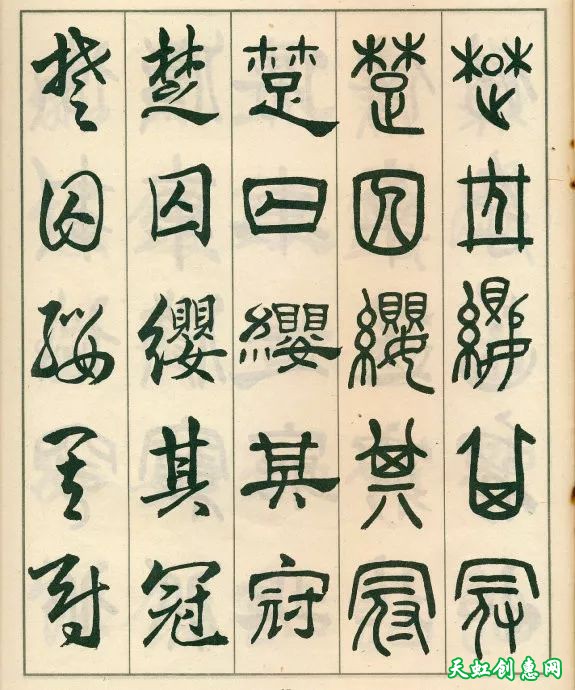 楚囚纓其冠
楚囚纓其冠
楚囚纓其冠
楚囚纓其冠
楚囚纓其冠
天虹创意网